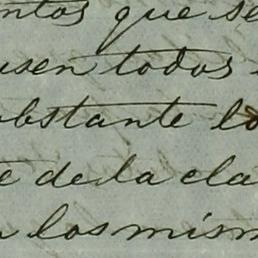 ntos que se
usen todos
obstante lo
e de la cla
los mism